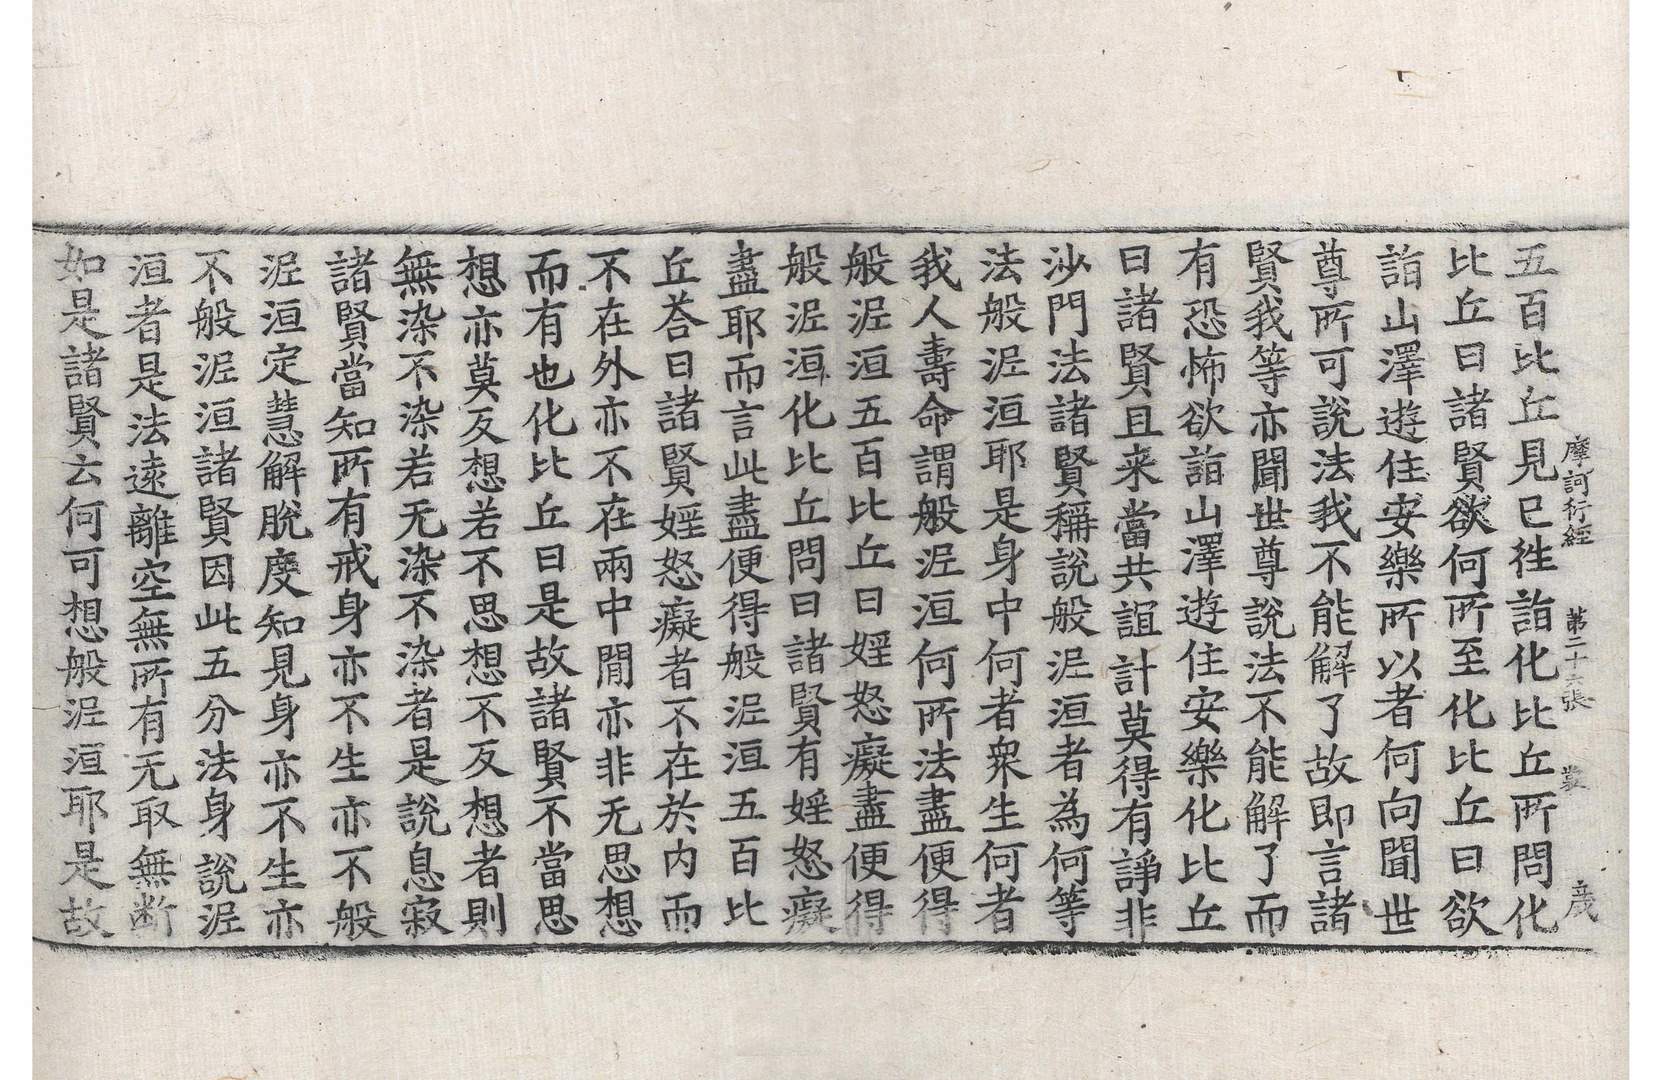 摩訶衍經 第二十六張 裳
五百比丘見已往詣化比丘所問化
比丘曰諸賢欲何所至化比丘曰欲
詣山澤遊住安樂所以者何向聞世
尊所可說法我不能解了故即言諸
賢我等亦聞世尊說法不能解了而
有恐怖欲詣山澤遊住安樂化比丘
曰諸賢且来當共誼計莫得有諍非
沙門法諸賢稱說般泥洹者為何等
法般泥洹耶是身中何者衆生何者
我人壽命謂般泥洹何所法盡便得
般泥洹五百比丘曰婬怒癡盡便得
般泥洹化比丘問曰諸賢有婬怒癡
盡耶而言此盡便得般泥洹五百比
丘荅曰諸賢婬怒癡者不在於內而
不在外亦不在兩中閒亦非无思想
而有也化比丘曰是故諸賢不當思
想亦莫反想若不思想不反想者則
無染不染若无染不染者是說息寂
諸賢當知所有戒身亦不生亦不般
泥洹定慧解脫度知見身亦不生亦
不般泥洹諸賢因此五分法身說泥
洹者是法遠離空無所有无取無断
如是諸賢云何可想般泥洹耶是故